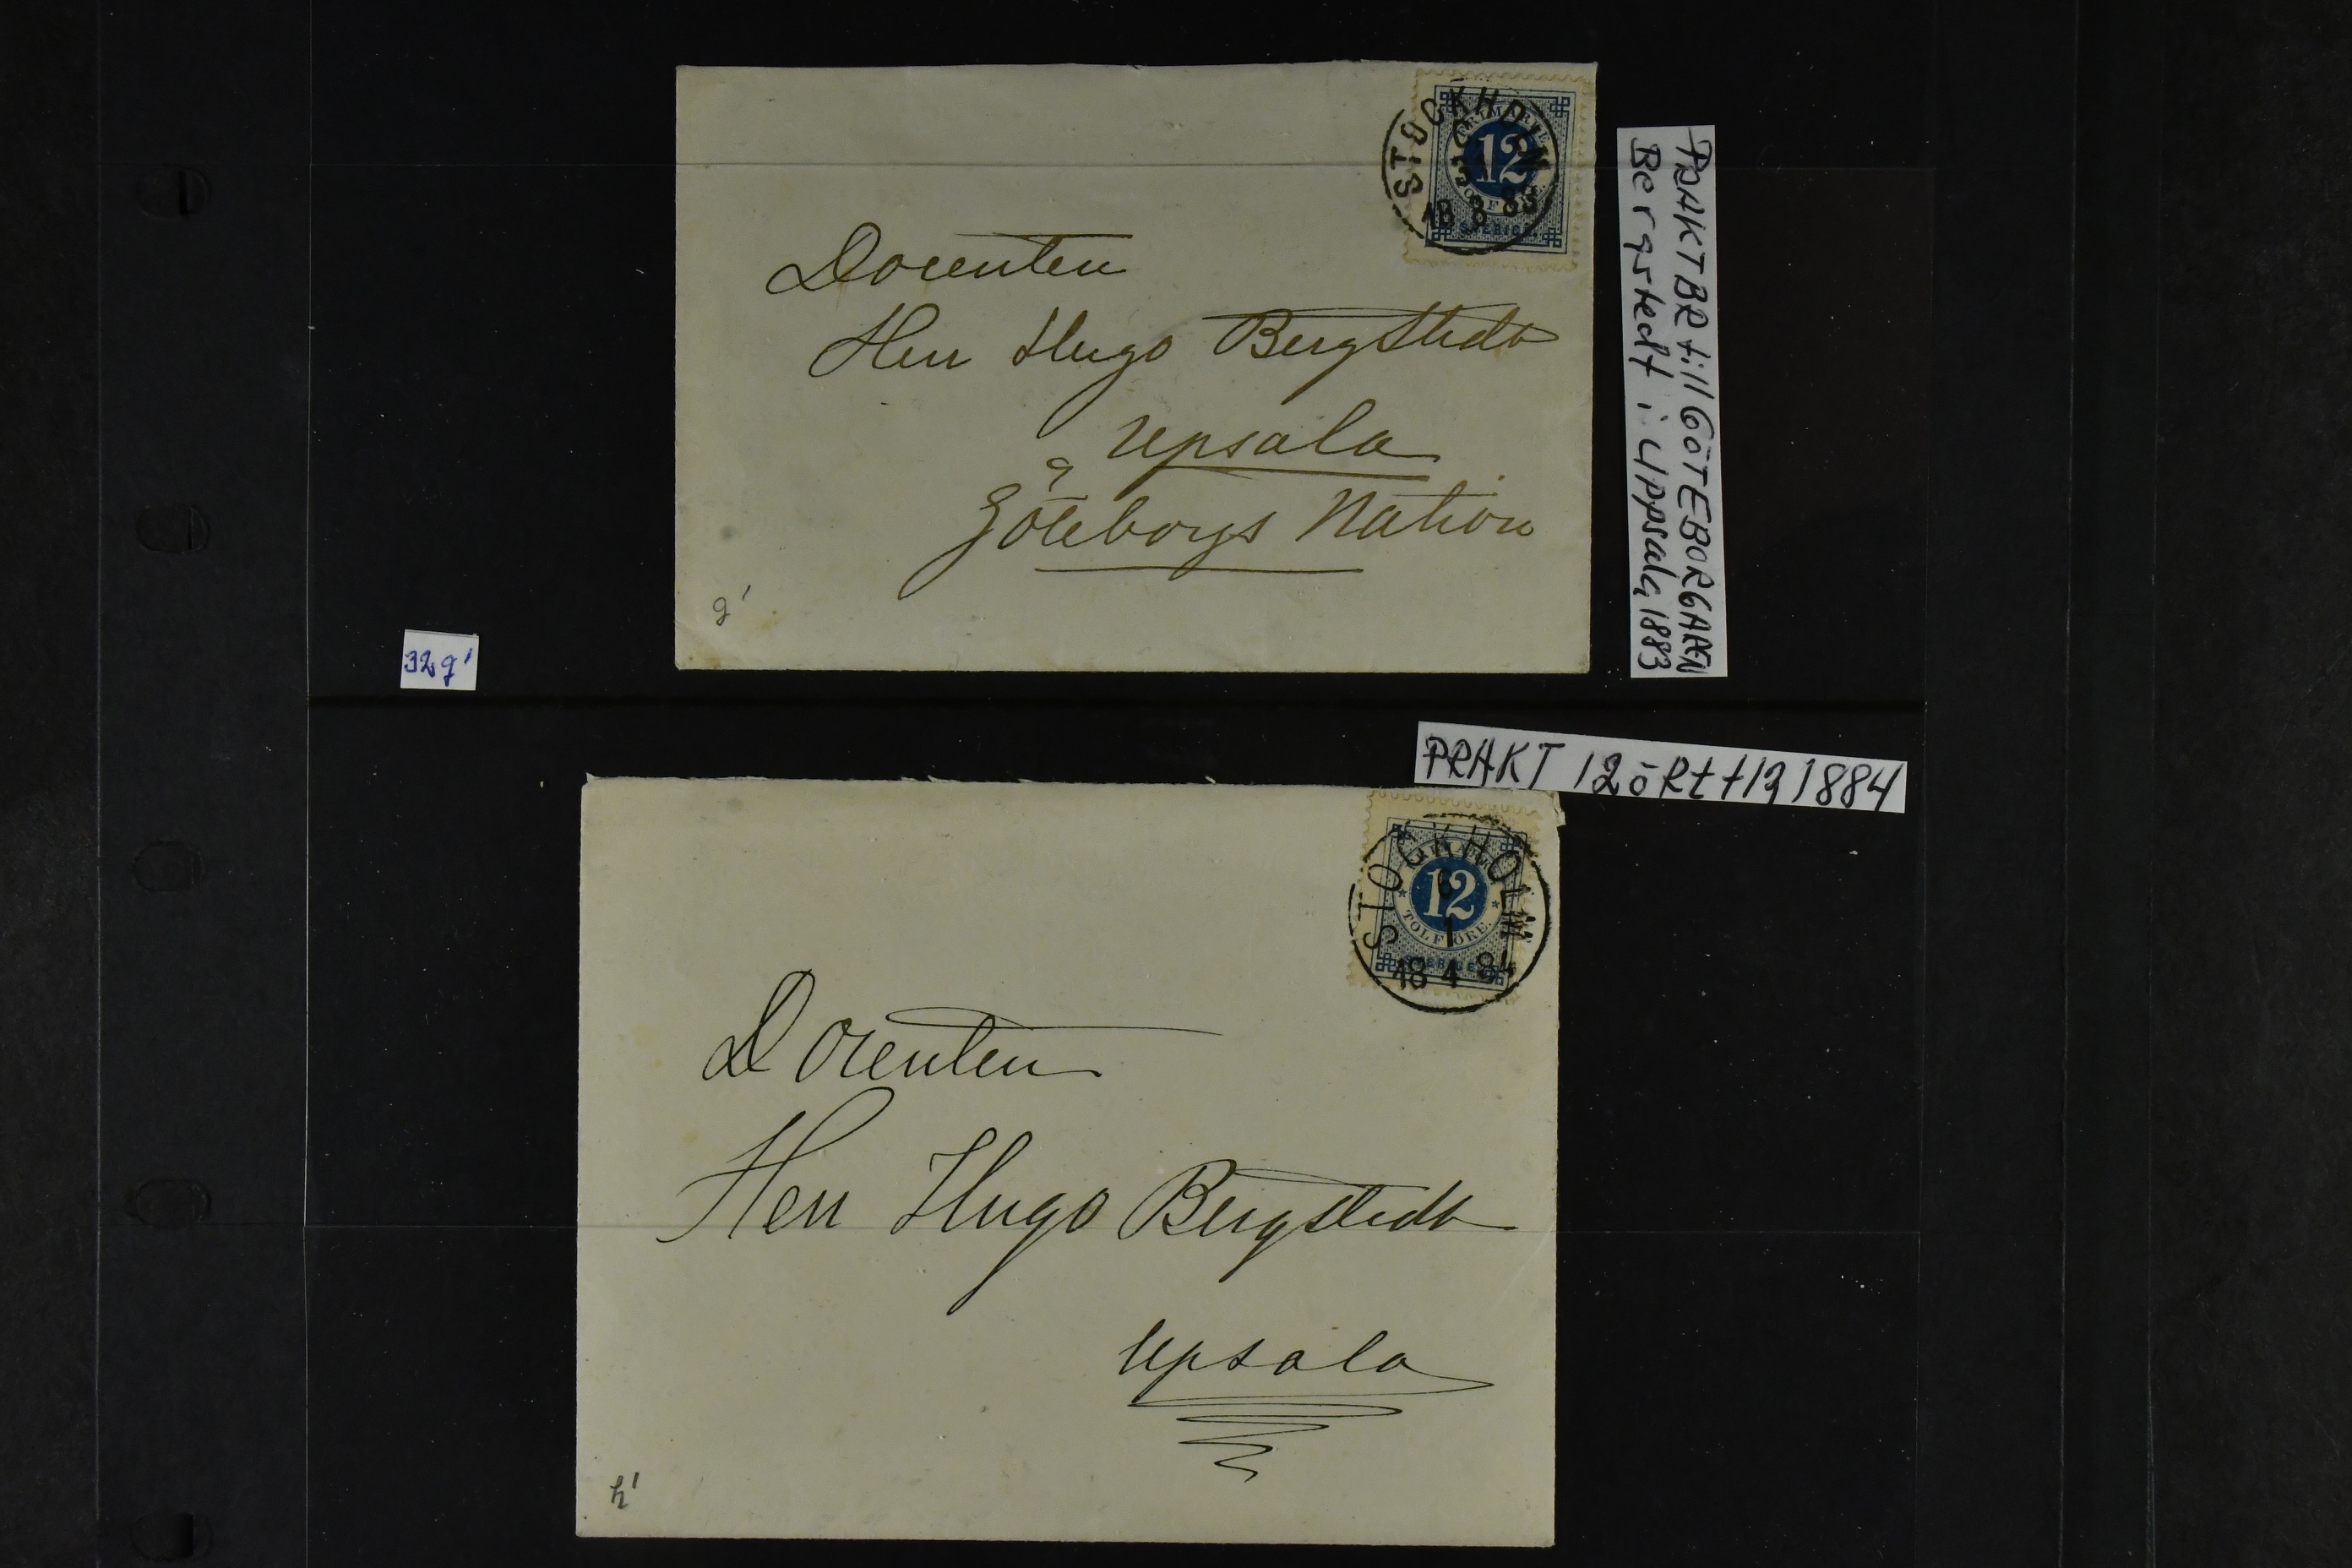 STOCKHOLM
FRIMÄRKE
12
TOLF ÖRE.
18 8 83
SVERIGE.
Docenten
Herr Hugo Bergstedt
Upsala
Göteborgs Nation
g'
PRAKTBR till GÖTEBORGAREN
Bergstedt i Uppsala 1883
32g'
PRAKT 12ö
1884
STOCKHOLM
12
TOLF ÖRE.
1
18 4 84
SVERIGE
Docenten
Herr Hugo Bergstedt
Upsala
h'